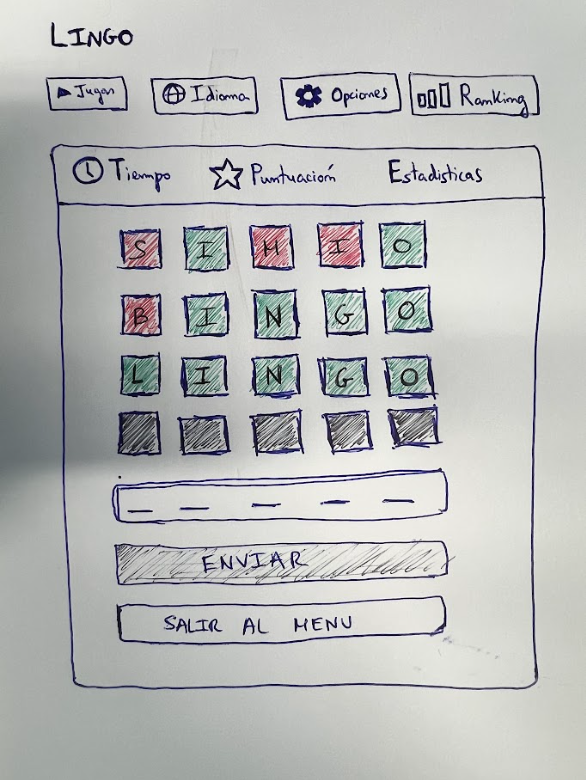 LINGO
Jugar Idioma Opciones Ranking
Tiempo Puntuación Estadisticas
S I M I O
B I N G O
L I N G O
ENVIAR
SALIR AL MENU